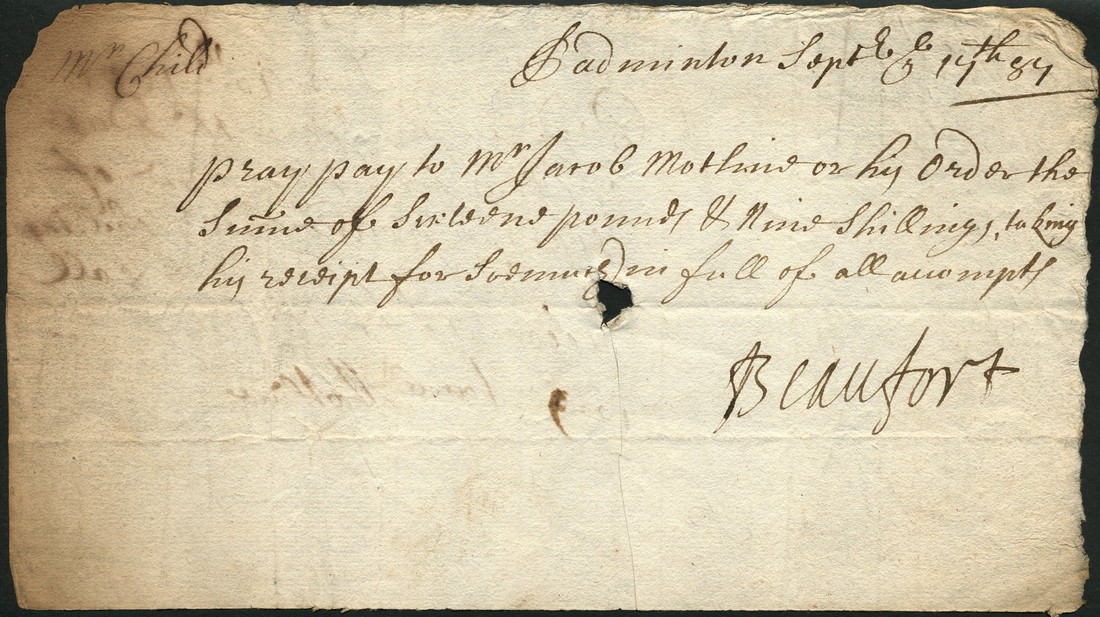 Mr Child
Badminton Septbr ye 17th 87
pray pay to Mr Jacob Motline or his Order the
Sume of Sixteene pounds & Nine Shillings, taking
his receipt for Soemuch in full of all acompts
Beaufort